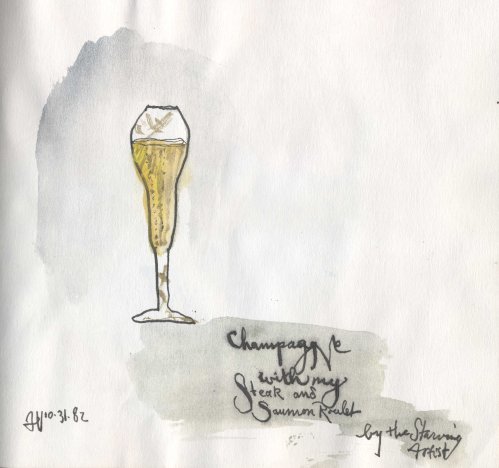 Champagne
with my
Steak and
Saumon Roulet
by the Starving
Artist
10.31.82